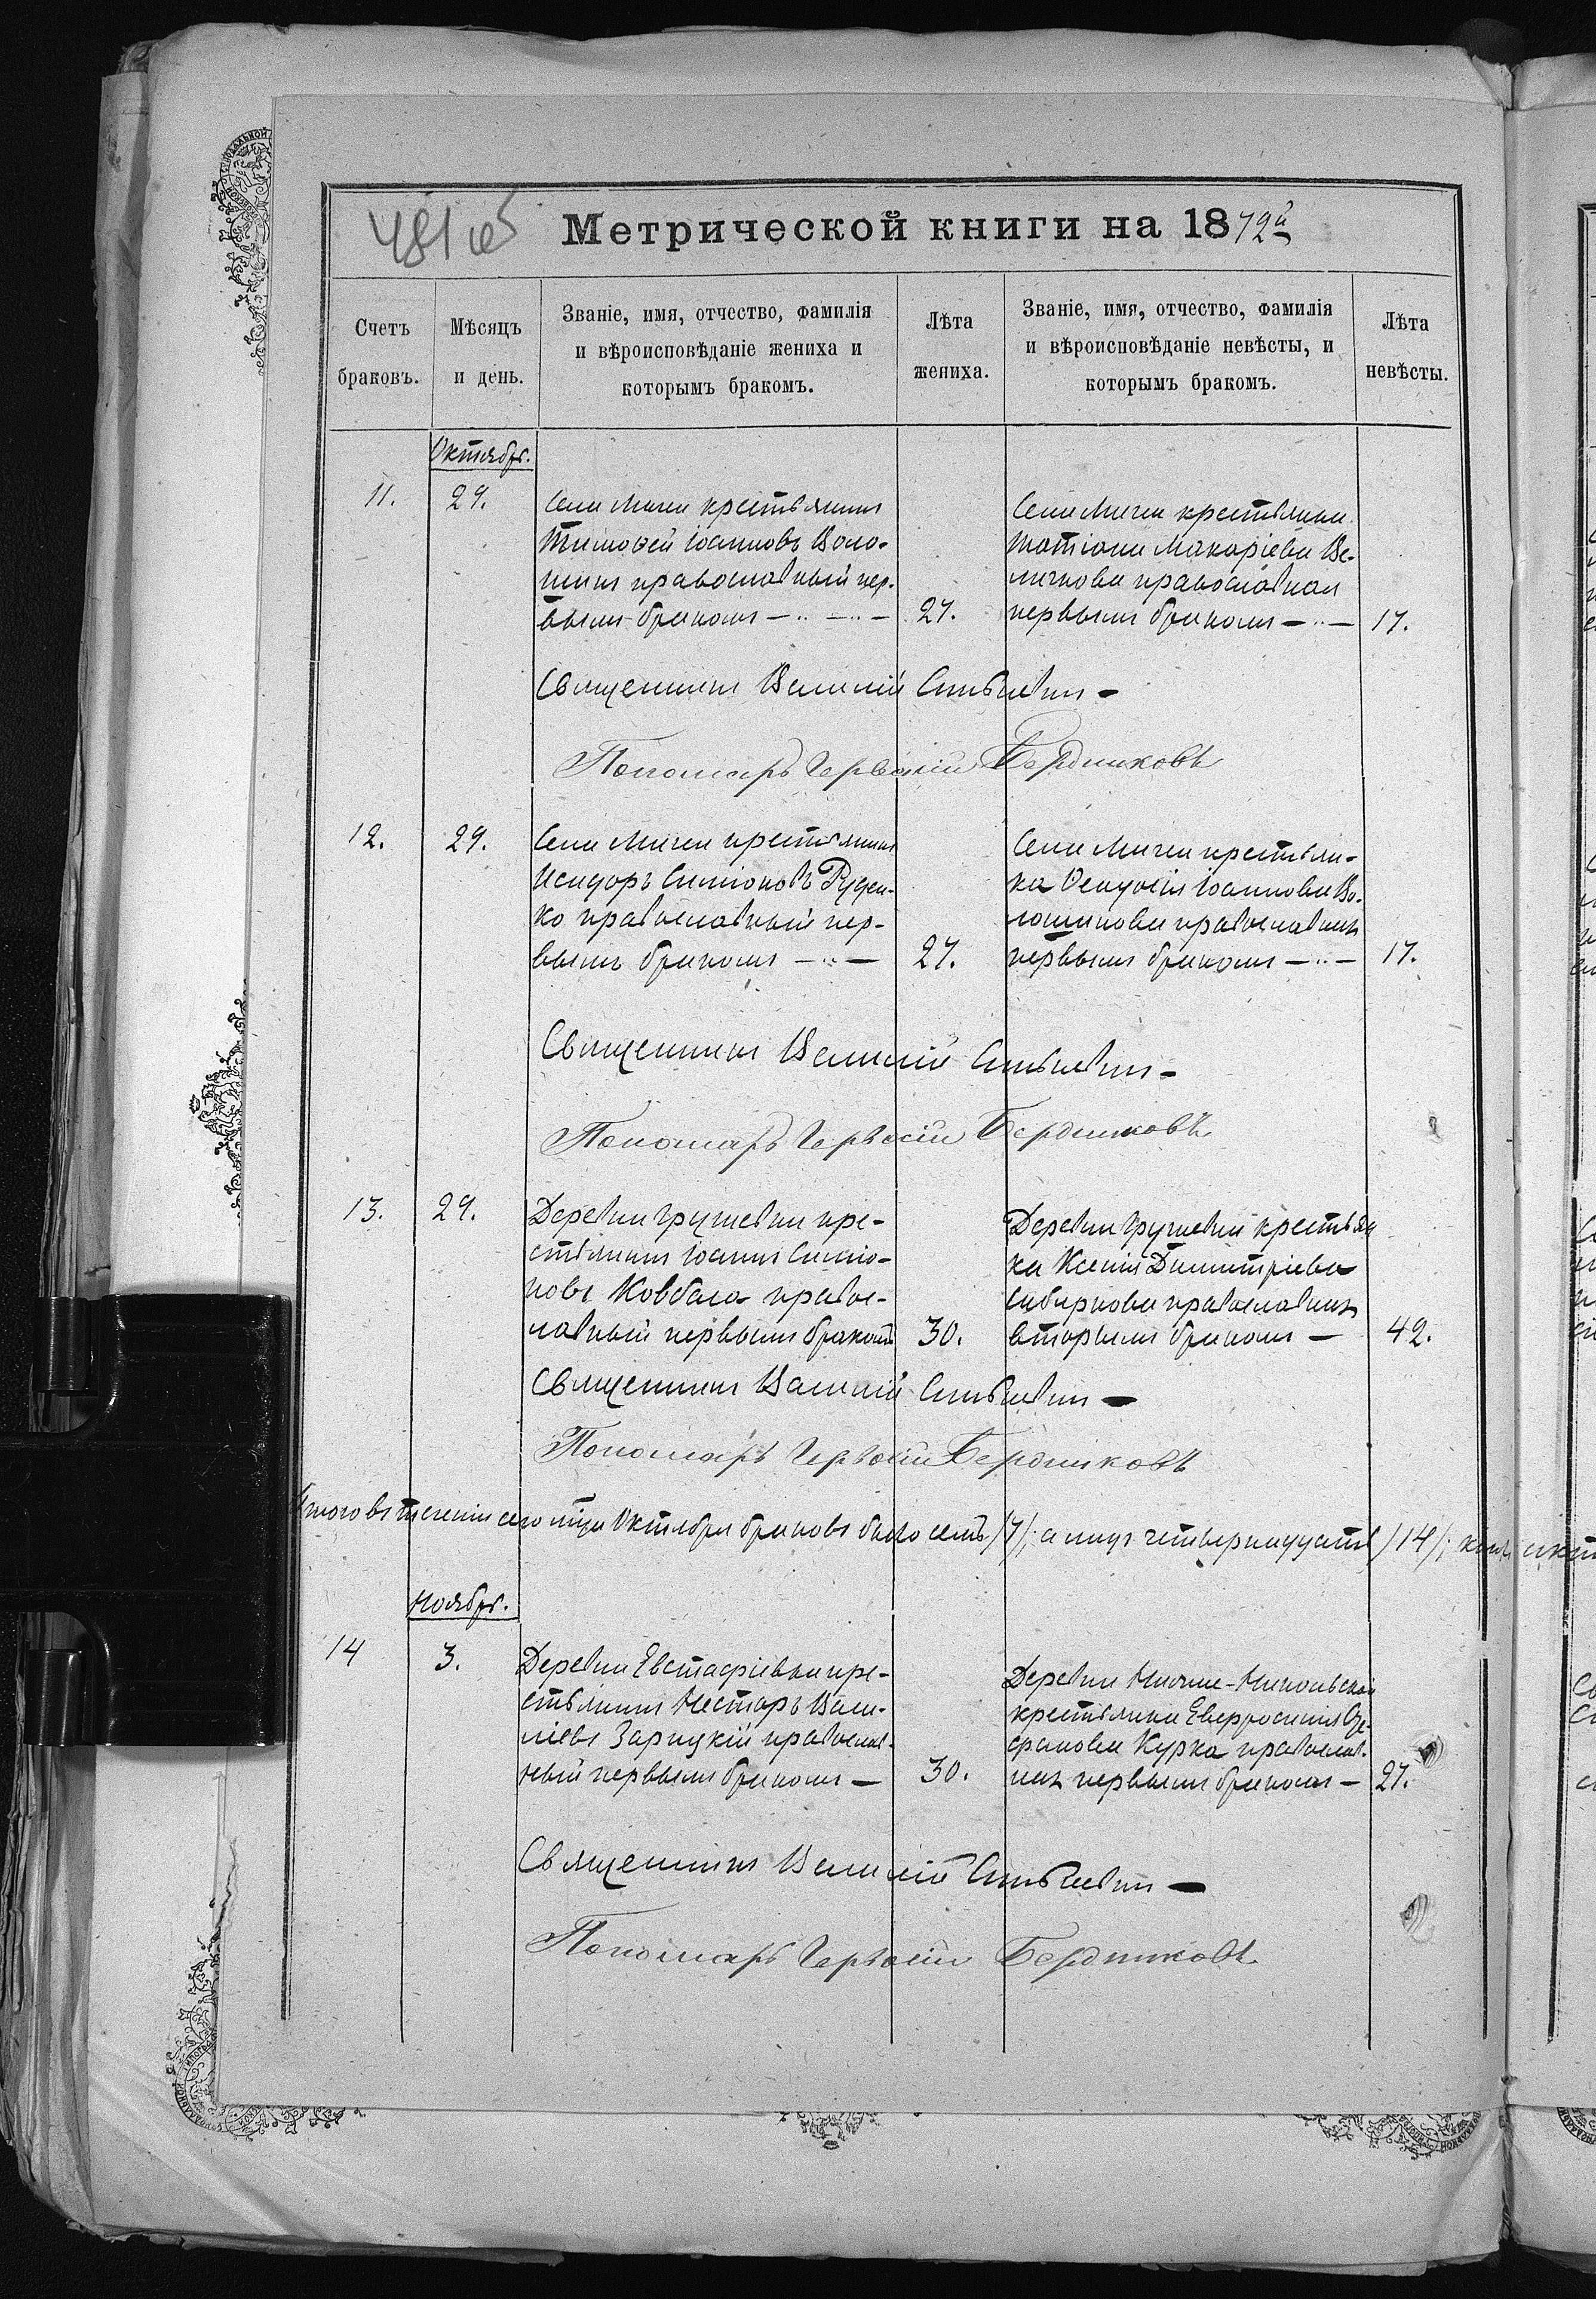 481 об
Метрической книги на 1872й
Счетъ браковъ.
Мѣсяцъ и день.
Званіе, имя, отчество, фамилія и вѣроисповѣданіе жениха и которымъ бракомъ.
Лѣта жениха.
Званіе, имя, отчество, фамилія и вѣроисповѣданіе невѣсты, и которымъ бракомъ.
Лѣта невѣсты.
Октябрь.
11.
29.
Села крестьянинъ
Тимоѳей Іоанновъ Воло-
шинъ православный пер-
вымъ бракомъ
27.
Села крестьянка
Татіана Макаріева Ве-
личкова православная
первымъ бракомъ
17.
Священникъ Василій
Пономарь Бердниковъ
12.
29.
Села крестьянинъ
Исидоръ Симіоновъ Руден-
ко православный пер-
вымъ бракомъ
27.
Села крестьян-
ка Ѳеодосія Іоаннова Во-
лошинова православная
первымъ бракомъ
17.
Священникъ Василій
Пономарь Бердниковъ
13.
29.
Деревни Грушевки кре-
стьянинъ Іоаннъ Симіо-
новъ Ковбаса правос-
лавный первымъ бракомъ
30.
Деревни Грушевки крестьян
ка Ксенія Димитріева
православная
вторымъ бракомъ
42.
Священникъ Василій
Пономарь Бердниковъ
Итого въ теченіи сего мѣсяца Октября браковъ было семь /7/; а лицъ четырнадцать /14/;
Ноябрь.
14
3.
Деревни Евстафіевки кре-
стьянинъ Несторъ Васи-
ліевъ Зарицкій православ-
ный первымъ бракомъ
30.
Деревни Нижне-Никольской
крестьянка Евфросинія
Курка православ-
ная первымъ бракомъ
27.
Священникъ Василій
Пономарь Бердниковъ